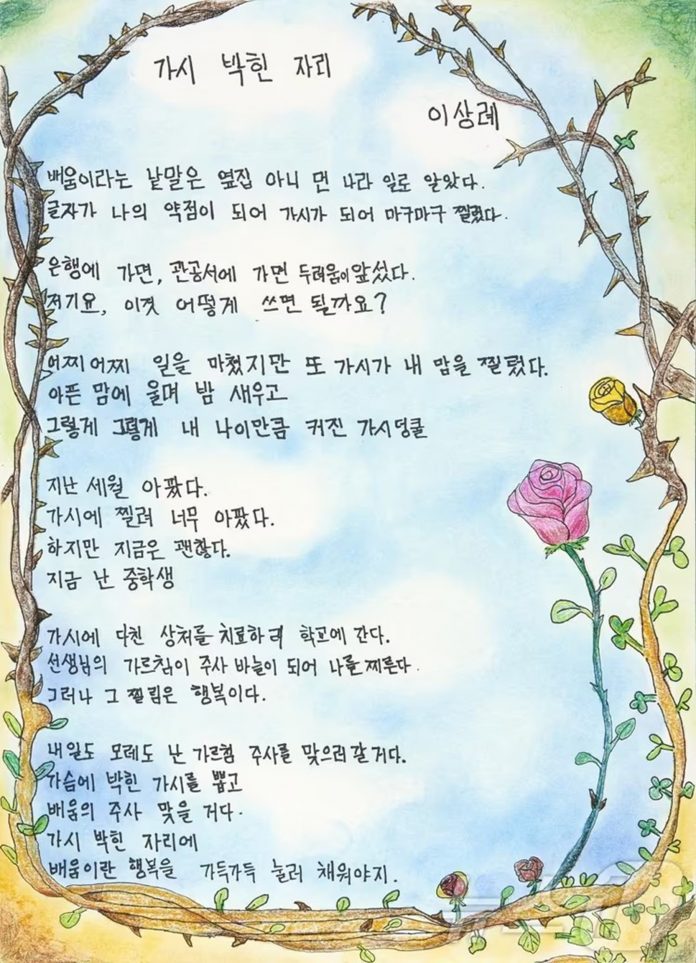 가시 박힌 자리
이상례
배움이라는 낱말은 옆집 아니 먼 나라 일로 알았다.
글자가 나의 약점이 되어 가시가 되어 마구마구 찔렀다.
은행에 가면, 관공서에 가면 두려움이 앞섰다.
저기요, 이것 어떻게 쓰면 될까요?
어찌어찌 일을 마쳤지만 또 가시가 내 맘을 찔렀다.
아픈 맘에 울며 밤 새우고
그렇게 그렇게 내 나이만큼 커진 가시덩쿨
지난 세월 아팠다.
가시에 찔려 너무 아팠다.
하지만 지금은 괜찮다.
지금 난 중학생
가시에 다친 상처를 치료하러 학교에 간다.
선생님의 가르침이 주사 바늘이 되어 나를 찌른다.
그러나 그 찔림은 행복이다.
내일도 모레도 난 가르침 주사를 맞으러 갈 거다.
가슴에 박힌 가시를 뽑고
배움의 주사 맞을 거다.
가시 박힌 자리에
배움이란 행복을 가득가득 눌러 채워야지.